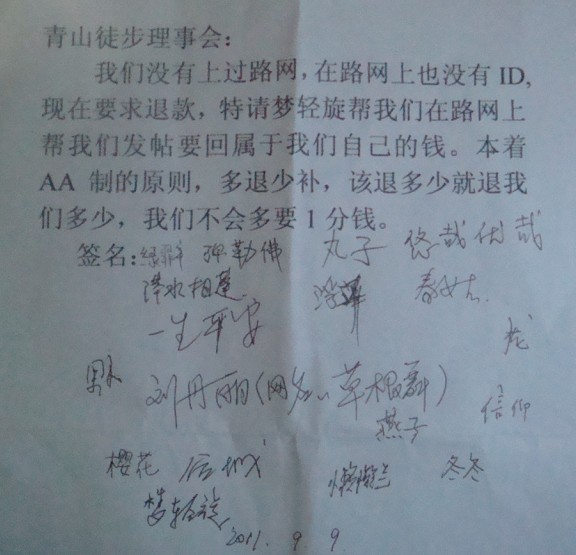 青山徒步理事会：
我们没有上过路网，在路网上也没有 ID,
现在要求退款，特请梦轻旋帮我们在路网上
帮我们发帖要回属于我们自己的钱。本着
AA 制的原则，多退少补，该退多少就退我
们多少，我们不会多要 1 分钱。
签名: 弥勒佛 丸子 悠哉优哉
萍水相逢 春姑
一生平安
龙
刘丹丽(网名:草根群)
信仰
燕子
樱花 冬冬
梦轻旋
2011. 9 9